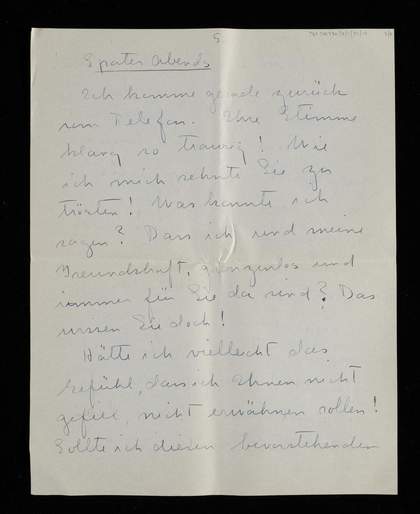 5
Später Abends
Ich komme gerade zurück
vom Telefon. Ihre Stimme
klang so traurig! Wie
ich mich sehnte Sie zu
trösten! Was konnte ich
sagen? Dass ich und meine
Freundshaft, grenzenlos und
immer für Sie da sind? Das
wissen Sie doch!
Hätte ich vielleicht das
Gefühl, dass ich Ihnen nicht
gefiel, nicht erwähnen sollen!
Sollte ich diesen bevorstehenden